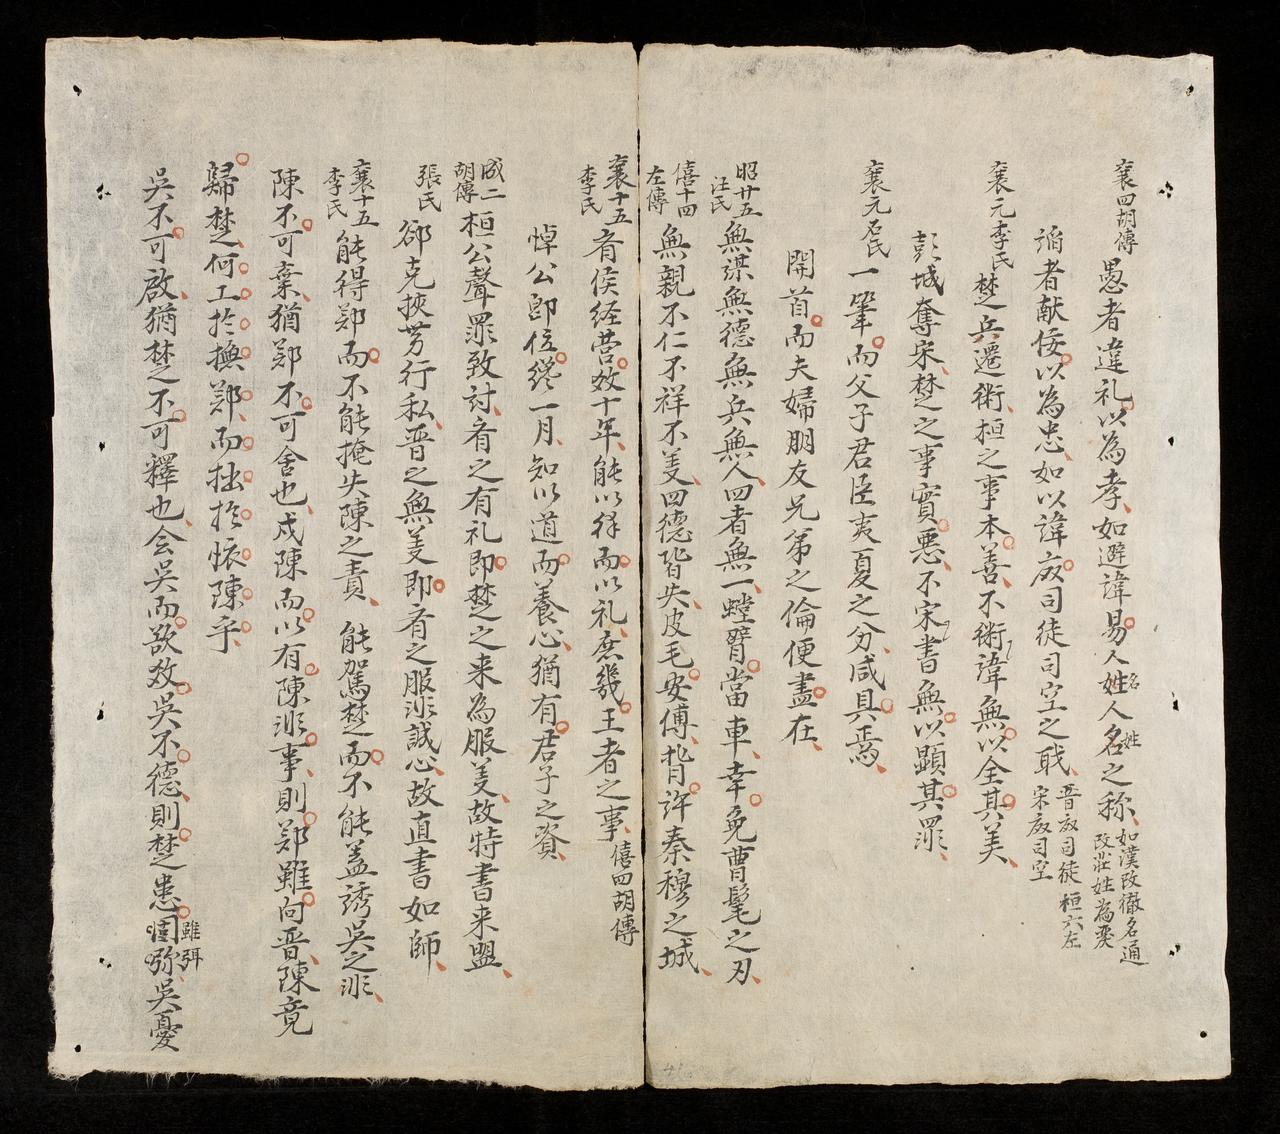 襄四胡傳 愚者違礼以為孝如避諱易人姓名人名姓之称如漢改徹名通改莊姓為嚴
謟者献佞以為忠如以諱廢司徒司空之戢晋廢司徒宋廢司空桓六左
襄元李氏 楚兵遷術桓之事本善不術諱無以全其美
彭城奪宋楚之事實惡不宋書無以顯其罪
襄元石氏 一筆而父子君臣夷夏之分咸具焉
開首而夫婦朋友兄弟之倫便盡在
昭廿五汪氏 無謀無德無兵無人四者無一螳臂當車幸免曹髦之刃
僖十四左傳 無親不仁不祥不美四德皆失皮毛安傅背許秦穆之城
襄十五李氏 斉侯経营效十年能以律而以礼庶幾王者之事僖四胡傳
悼公即位纔一月知以道而養心猶有君子之資
成二胡傳 桓公聲罪致討斉之有礼即楚之来為服美故特書来盟
張氏 郤克挾势行私晋之無美即斉之服非誠心故直書如師
襄十五李氏 能得郑而不能掩失陳之責 能駕楚而不能盖誘吳之非
陳不可棄猶郑不可舍也戍陳而以有陳非事則郑雖向晋陳竟
歸楚何工於撫郑而拙於懷陳乎
吳不可啟猶楚不可釋也会吳而欲效吳不德則楚患固雖弥弭吳憂